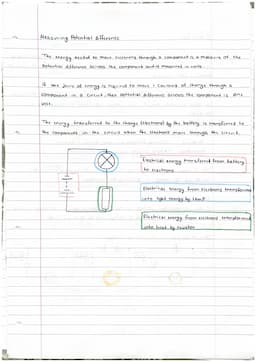 Measuring Potential difference
The energy needed to move electrons through a component is a measure of the
potential difference across the component and is measured in volts.
If one joule of energy is required to move 1 coulomb of charge through a
component in a circuit, then potential difference across the component is one
volt.
The energy transferred to the charge (electrons) by the battery is transferred to
the components in the circuit when the electrons move through the circuit.
Electrical energy transferred from battery
to electrons
Electrical energy from electrons transferred
into light energy by lamp
Electrical energy from electrons transferred
into heat by resistor